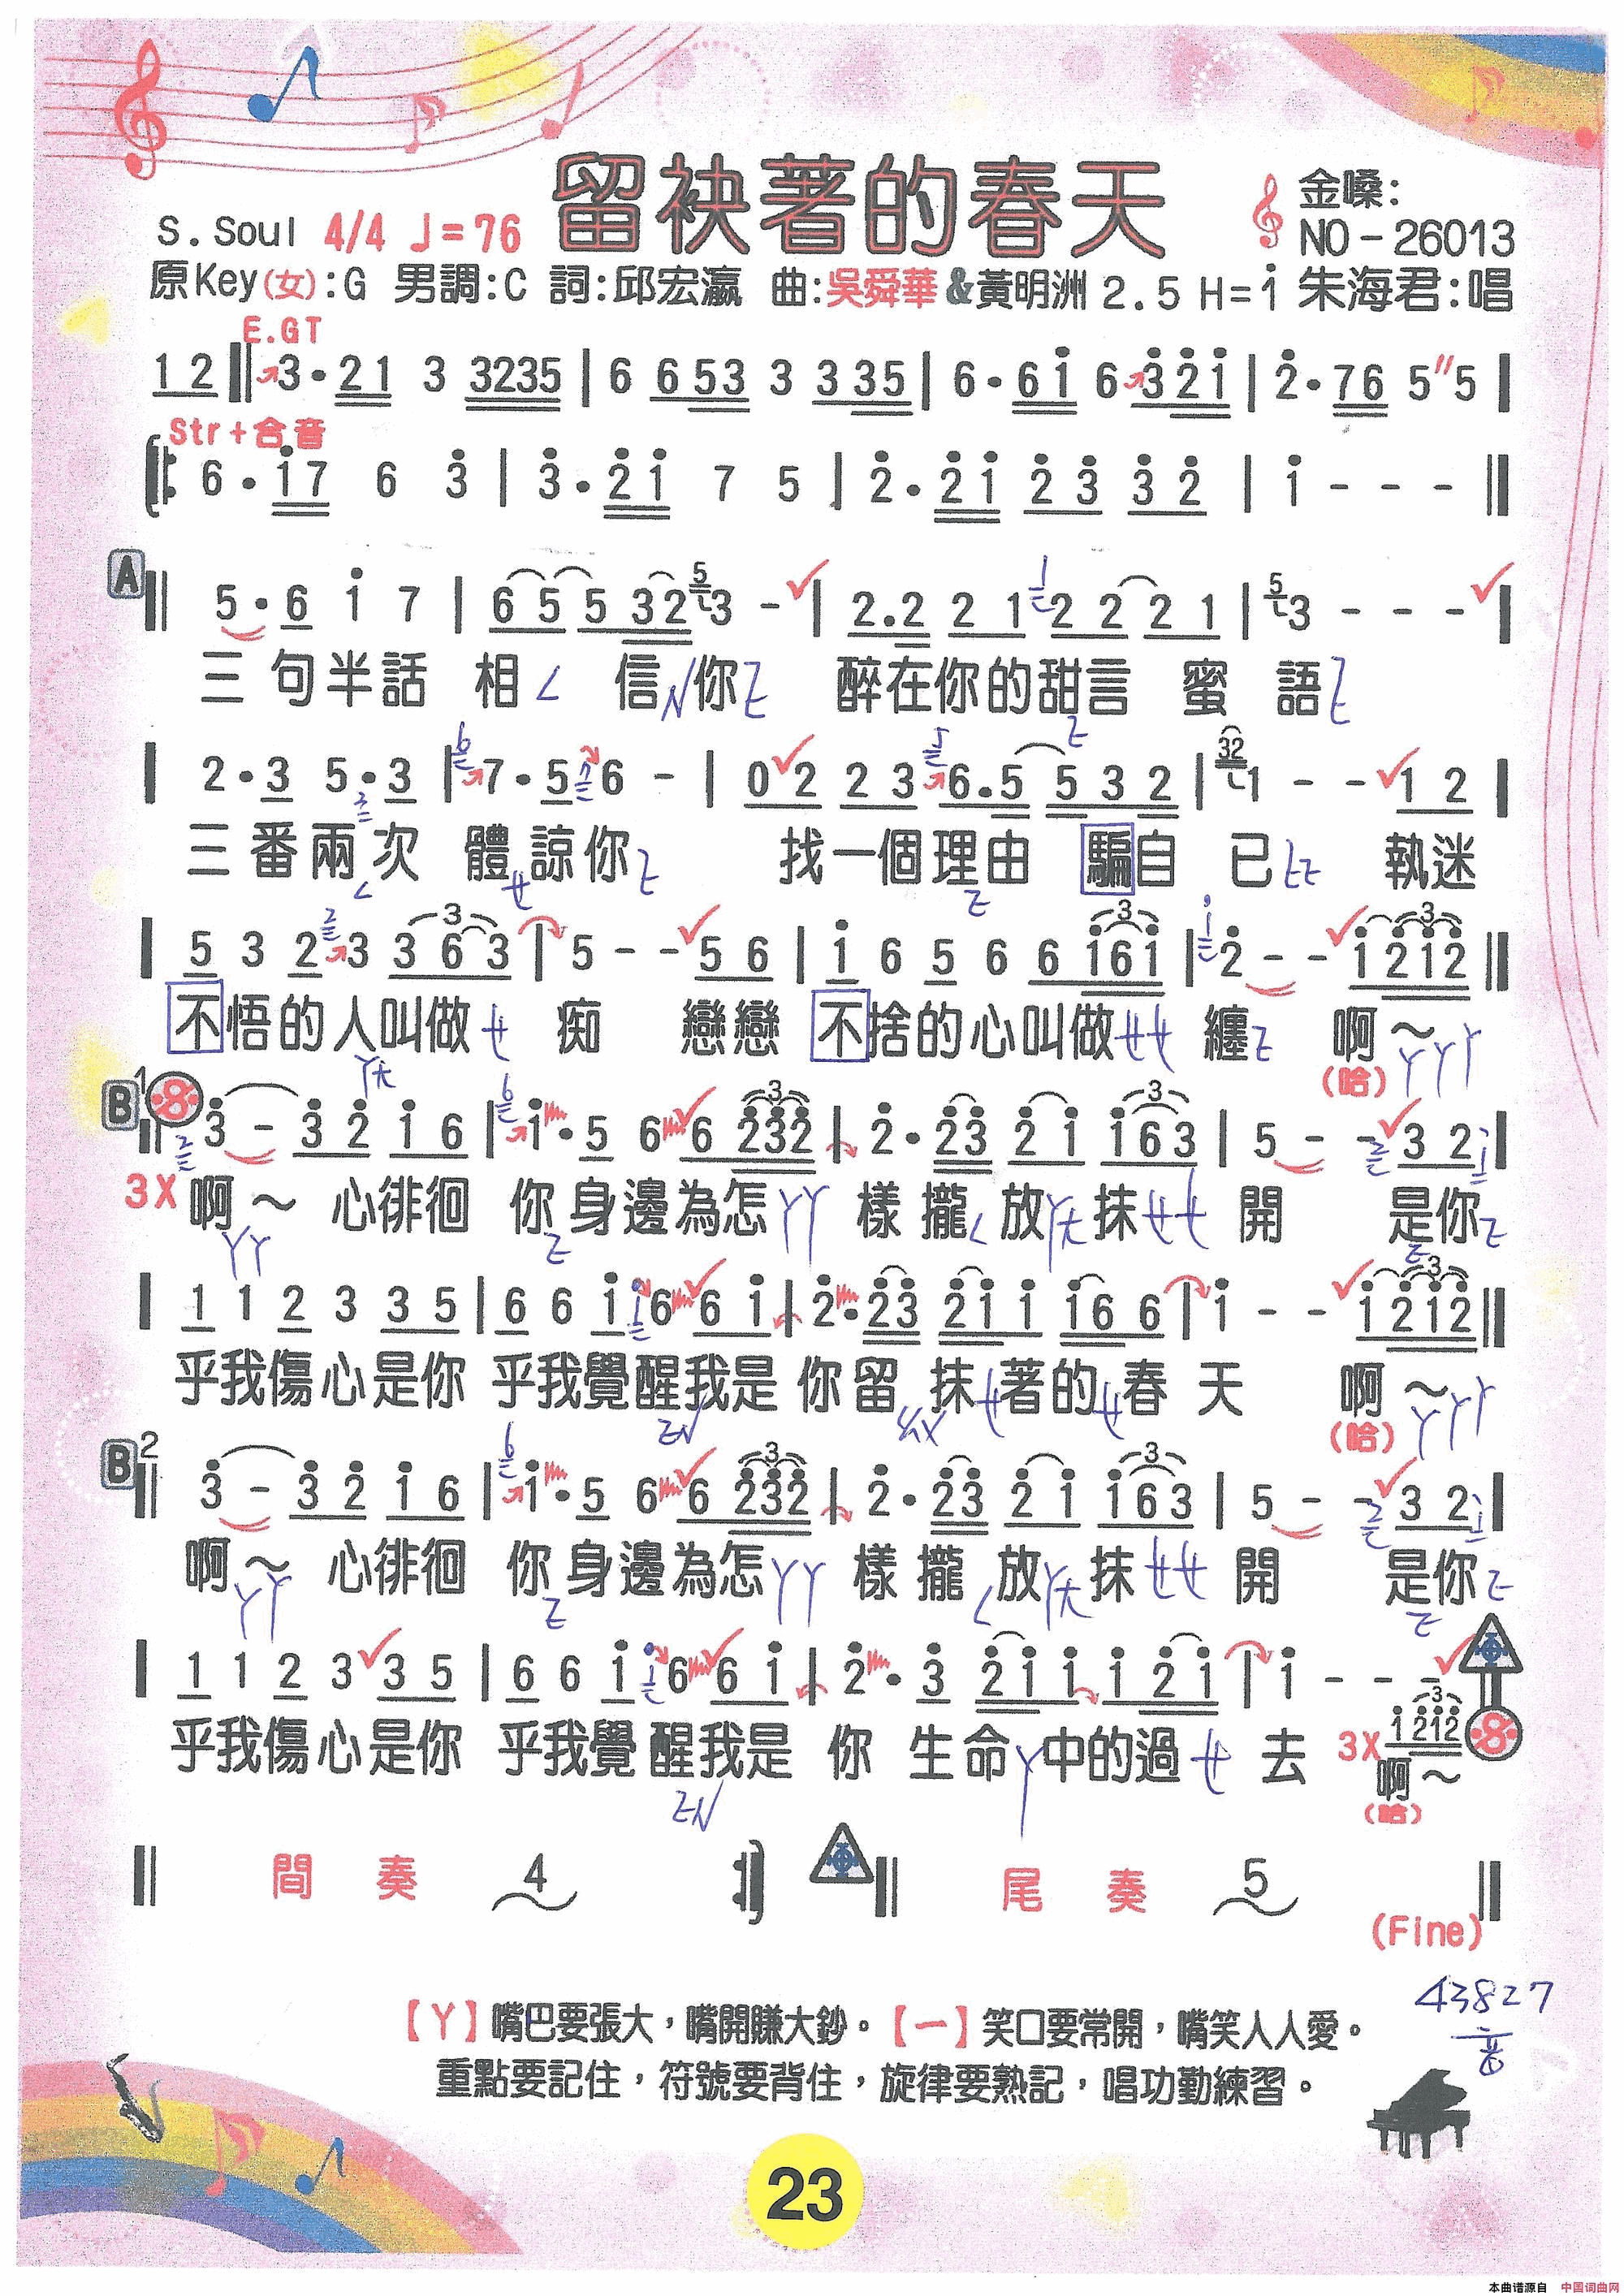 留袂著的春天
金嗓:
S.Soul 4/4 ♩=76
NO-26013
原Key(女):G 男調:C 詞:邱宏瀛 曲:吳舜華&黃明洲 2.5 H=i 朱海君:唱
E.GT
1 2 ‖ 3·21 3 3235 | 6 6 53 3 3 35 | 6·6i 6 3 2i | 2·76 5"5 |
Str+合音
6·i7 6 3 | 3·2i 7 5 | 2·2i 2 3 3 2 | i - - - ‖
A
5·6 i 7 | 6 5 5 32 3 - | 2.2 2 1 2 2 2 1 | 3 - - - |
三句半話 相 信 你 醉在你的甜言 蜜 語
2·3 5·3 | 7·5 6 - | 0 2 2 3 6.5 5 3 2 | 1 - - 1 2 |
三番兩次 體諒你 找一個理由 騙自 己 執迷
5 3 2 3 3 6 3 | 5 - - 5 6 | i 6 5 6 6 i6i | 2 - - i 2i2 ‖
不悟的人叫做 痴 戀戀 不捨的心叫做 纏 啊~
(哈)
B1
3 - 3 2 i 6 | i·5 6 6 232 | 2·23 2 i i63 | 5 - - 3 2 |
3X 啊~ 心徘徊 你身邊為怎 樣攏 放 抹 開 是你
1 1 2 3 3 5 | 6 6 i 6 6 i | 2·23 2i i i6 6 | i - - i 2i2 ‖
乎我傷心是你 乎我覺醒我是 你留 抹 著的 春 天 啊~
(哈)
B2
3 - 3 2 i 6 | i·5 6 6 232 | 2·23 2 i i63 | 5 - - 3 2 |
啊~ 心徘徊 你身邊為怎 樣攏 放 抹 開 是你
1 1 2 3 3 5 | 6 6 i 6 6 i | 2·3 2i i i 2i | i - - -
3X i 2i2
乎我傷心是你 乎我覺醒我是 你 生命 中的過 去 啊~
(哈)
間 奏 4 尾 奏 5
(Fine)
43827
【ㄚ】嘴巴要張大，嘴開賺大鈔。【一】笑口要常開，嘴笑人人愛。
重點要記住，符號要背住，旋律要熟記，唱功勤練習。
23
本曲谱源自 中国词曲网